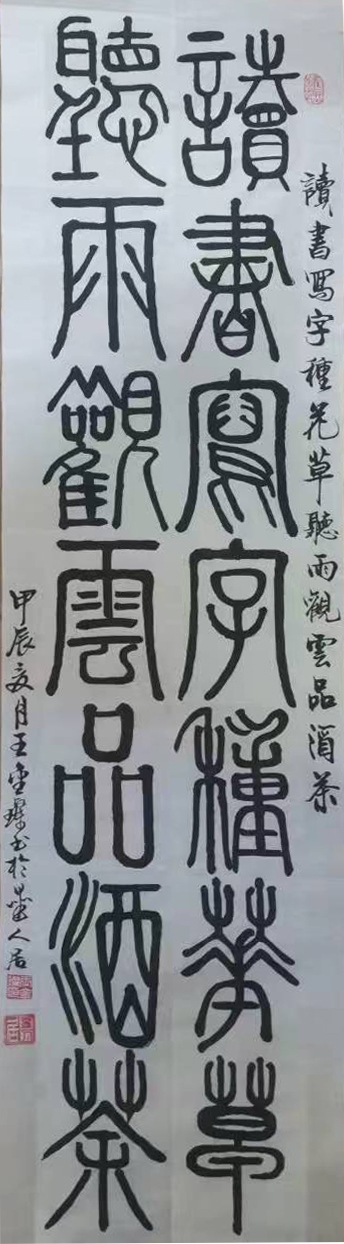 讀書寫字種花草聽雨觀雲品酒茶
讀書寫字種華草
聽雨觀雲品酒茶
甲辰亥月王金璨书於墨人居